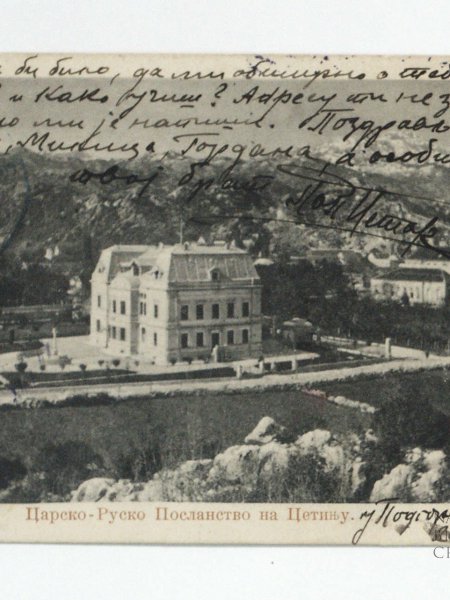 би било, да ми опширно о теб
и како учиш? Адресу ти не з
ми је напиши. Поздрав
Милица, Гордана, а особи
твој брат
Царско-Руско Посланство на Цетињу.
у Подгор